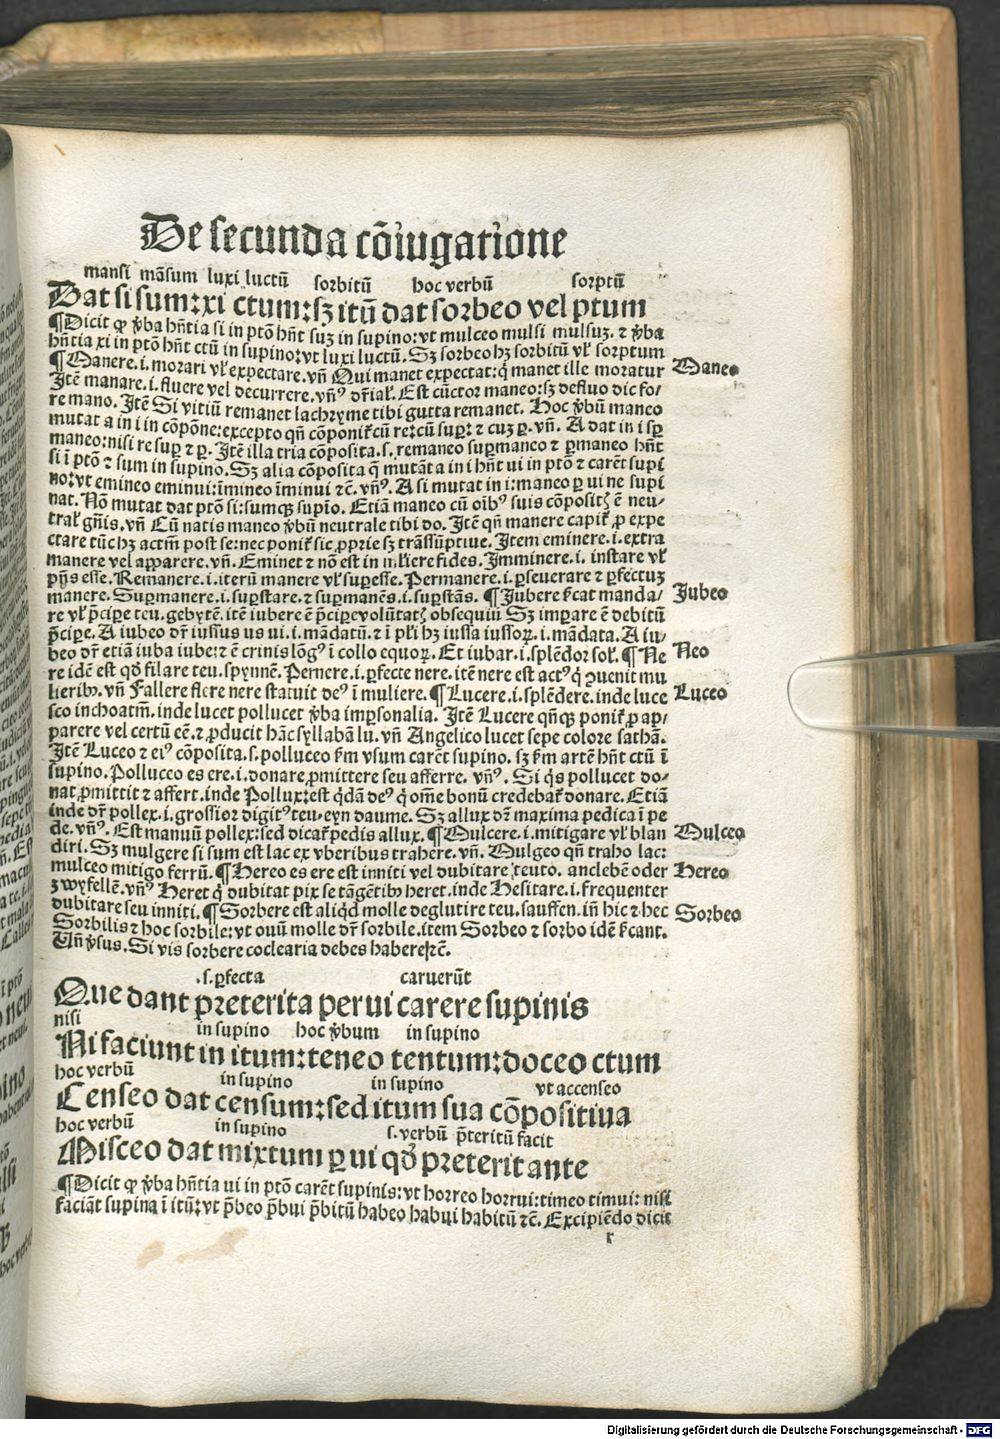 De secunda cōiugatione
mansi māsum luxi luctū sorbitū hoc verbū sorptū
Dat si sum: xi ctum: sꝫ itū dat sorbeo vel ptum
¶Dicit ꝙ v̓ba hn̄tia si in ptō hn̄t suꝫ in supino: vt mulceo mulsi mulsuꝫ. ⁊ v̓ba
hn̄tia xi in ptō hn̄t ctū in supino: vt luxi luctū. Sꝫ sorbeo hꝫ sorbitū vl̓ sorptum
¶Manere .i. morari vl̓ expectare. vn̄ Qui manet expectat: q̇ manet ille moratur
Maneo
Itē manare .i. fluere vel decurrere. vn̄⁹ dr̄ial̓. Est cūctor maneo: sꝫ defluo dic fo/
re mano. Itē Si vitiū remanet lachryme tibi gutta remanet. Hoc v̓bū maneo
mutat a in i in cōpōne: excepto qn̄ cōponit̄ cū re: cū suꝑ: ⁊ cuꝫ ꝑ. vn̄. A dat in i sꝑ
maneo: nisi re suꝑ ⁊ ꝑ. Itē illa tria cōposita .s. remaneo suꝑmaneo ⁊ ꝑmaneo hn̄t
si ī ptō ⁊ sum in supino. Sꝫ alia cōposita q̄ mutāt a in i hn̄t ui in ptō ⁊ carēt supi
no: vt emineo eminui: īmineo īminui ⁊c̄. vn̄⁹. A si mutat in i: maneo ꝑ ui ne supi
nat. Nō mutat dat ptō si: sumqꝫ supīo. Etiā maneo cū oīb⁹ suis cōpositꝭ ē neu/
tral̓ gn̄is. vn̄ Cū natis maneo v̓bū neutrale tibi do. Itē qn̄ manere capit̄ ꝓ expe
ctare tūc hꝫ actm̄ post se: nec ponit̄ sic ꝓprie sꝫ trāssūptiue. Item eminere .i. extra
manere vel apparere. vn̄. Eminet ⁊ nō est in mĺiere fides. Imminere .i. instare vl̓
pn̄s esse. Remanere .i. iterū manere vl̓ suꝑesse. Permanere .i. ꝑseuerare ⁊ ꝑfectuꝫ
manere. Suꝑmanere .i. suꝑstare. ⁊ suꝑmanēs .i. suꝑstās. ¶Jubere s̄cat manda/
Jubeo
re vl̓ p̄cipe teu. gebytē. itē iubere ē p̄cipe volūtatꝭ obsequiū Sꝫ imꝑare ē debitū
p̄cipe. A iubeo dr̄ iussus us ui .i. mādatū. ⁊ ī pl̓i hꝫ iussa iussoꝝ .i. mādata. A iu/
beo dr̄ etiā iuba iube: ⁊ ē crinis lōg⁹ ī collo equoꝝ. Et iubar .i. splēdor sol̓. ¶Ne
Neo
re idē est qd̓ filare teu. spynnē. Pernere .i. ꝑfecte nere. itē nere est act⁹ q̇ ꝯuenit mu
lieribꝫ. vn̄ Fallere flere nere statuit de⁹ ī muliere. ¶Lucere .i. splēdere. inde luce
Luceo
sco inchoatm̄. inde lucet pollucet v̓ba imꝑsonalia. Itē Lucere qn̄qꝫ ponit̄ ꝓ ap/
parere vel certū eē. ⁊ ꝓducit hāc syllabā lu. vn̄ Angelico lucet sepe colore sathā.
Itē Luceo ⁊ ei⁹ cōposita .s. polluceo s̄m vsum carēt supino. sꝫ s̄m artē hn̄t ctū ī
supino. Polluceo es ere .i. donare ꝓmittere seu afferre. vn̄⁹. Si q̇s pollucet do/
nat ꝓmittit ⁊ affert. inde Pollux: est qdā de⁹ q̇ om̄e bonū credebat̄ donare. Etiā
inde dr̄ pollex .i. grossior digit⁹ teu. eyn daume. Sꝫ allux dr̄ maxima pedica ī pe
de. vn̄⁹. Est manuū pollex: sed dicat̄ pedis allux. ¶Mulcere .i. mitigare vl̓ blan
Mulceo
diri. Sꝫ mulgere si sum est lac ex vberibus trahere. vn̄. Mulgeo qn̄ traho lac:
mulceo mitigo ferrū. ¶Hereo es ere est inniti vel dubitare teuto. anclebē oder
Hereo
zwyfellē. vn̄⁹ Heret q̇ dubitat pix se tāgētibꝫ heret. inde Hesitare .i. frequenter
dubitare seu inniti. ¶Sorbere est aliq̇d molle deglutire teu. sauffen. in̄ hic ⁊ hec
Sorbeo
Sorbilis ⁊ hoc sorbile: vt ouū molle dr̄ sorbile. item Sorbeo ⁊ sorbo idē s̄cant.
Vn̄ v̓sus. Si vis sorbere coclearia debes habere ⁊c̄.
.s. ꝑfecta caruerūt
Que dant preterita per ui carere supinis
nisi in supino hoc v̓bum in supino
Ni faciunt in itum: teneo tentum: doceo ctum
hoc verbū in supino in supino vt accenseo
Censeo dat censum: sed itum sua cōpositiua
hoc verbū in supino s. verbū p̄teritū facit
Misceo dat mixtum ꝑ ui qd̓ preterit ante
¶Dicit ꝙ v̓ba hn̄tia ui in ptō carēt supinis: vt horreo horrui: timeo timui: nisi
faciāt supina ī itū: vt p̄beo p̄bui p̄bitū habeo habui habitū ⁊c̄. Excipiēdo dicit
r
Digitalisierung gefördert durch die Deutsche Forschungsgemeinschaft - DFG